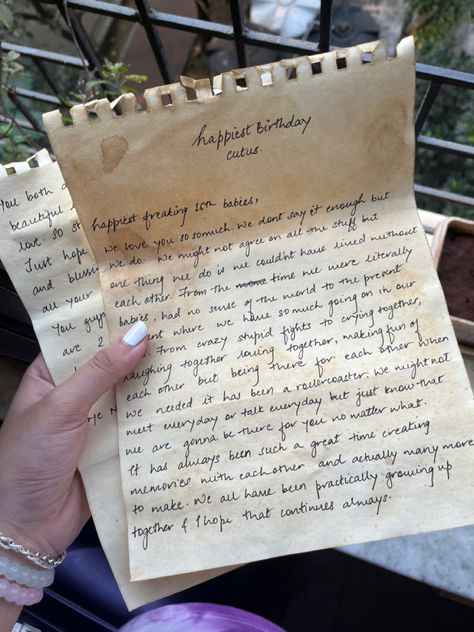 happiest Birthday
cutus.
happiest freaking 16th babies,
We love you so much. We dont say it enough but
we do. We might not agree on all the stuff but
one thing we do is we couldnt have lived without
each other. From the time we were literally
babies, had no sense of the world to the present
where we have so much going on in our
From crazy stupid fights to crying together,
laughing together loving together, making fun of
each other but being there for each other when
we needed it has been a rollercoaster. We might not
meet everyday or talk everyday but just know that
we are gonna be there for you no matter what.
It has always been such a great time creating
memories with each other and actually many more
to make. We all have been practically growing up
together & I hope that continues always.
You both a
beautiful
love. So st
Just hope
and bless
all your
You guys
are 2